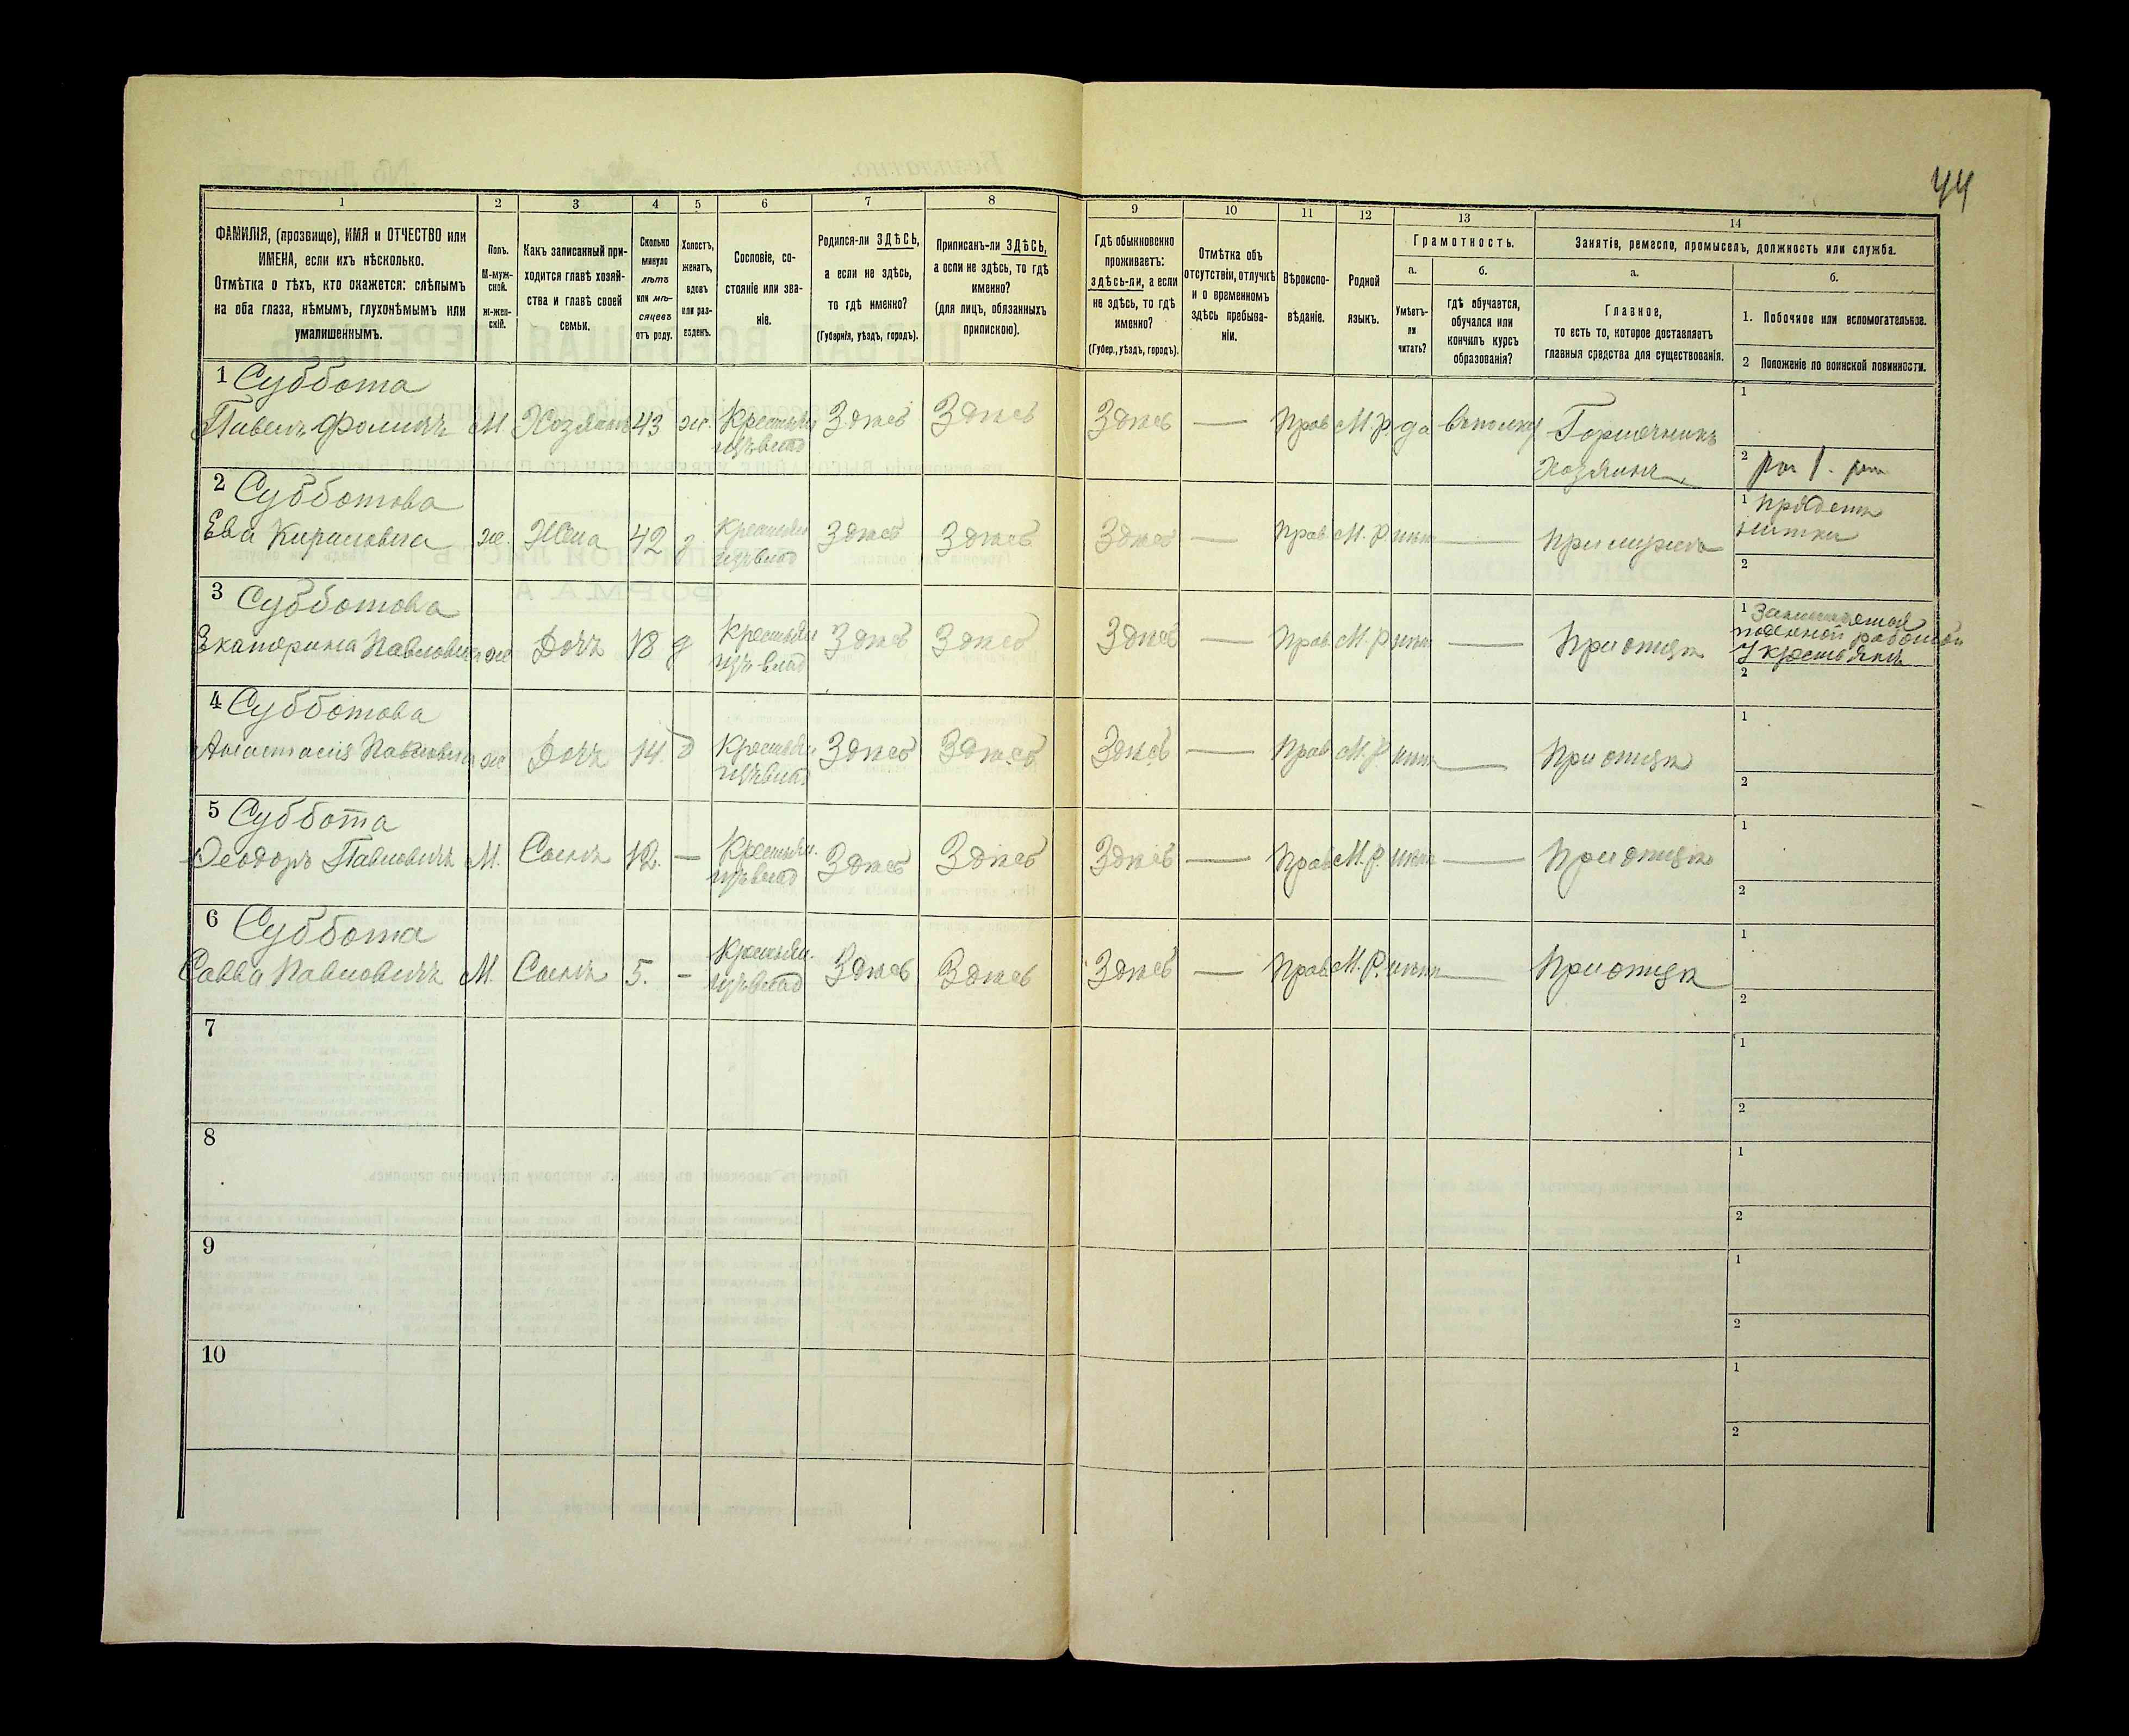 44
1 2 3 4 5 6 7 8 9 10 11 12 13 14
ФАМИЛІЯ, (прозвище), ИМЯ и ОТЧЕСТВО или
ИМЕНА, если ихъ нѣсколько.
Отмѣтка о тѣхъ, кто окажется: слѣпымъ
на оба глаза, нѣмымъ, глухонѣмымъ или
умалишеннымъ.
Полъ.
М-муж-
ской.
Ж-жен-
скій.
Какъ записанный при-
ходится главѣ хозяй-
ства и главѣ своей
семьи.
Сколько
минуло
лѣтъ
или мѣ-
сяцевъ
отъ роду.
Холостъ,
женатъ,
вдовъ
или раз-
веденъ.
Сословіе, со-
стояніе или зва-
ніе.
Родился-ли ЗДѢСЬ,
а если не здѣсь,
то гдѣ именно?
(Губернія, уѣздъ, городъ).
Приписанъ-ли ЗДѢСЬ,
а если не здѣсь, то гдѣ
именно?
(для лицъ, обязанныхъ
припискою).
Гдѣ обыкновенно
проживаетъ:
здѣсь-ли, а если
не здѣсь, то гдѣ
именно?
(Губер., уѣздъ, городъ).
Отмѣтка объ
отсутствіи, отлучкѣ
и о временномъ
здѣсь пребыва-
ніи.
Вѣроиспо-
вѣданіе.
Родной
языкъ.
Грамотность.
а.
Умѣетъ-
ли
читать?
б.
гдѣ обучается,
обучался или
кончилъ курсъ
образованія?
Занятіе, ремесло, промыселъ, должность или служба.
а.
Главное,
то есть то, которое доставляетъ
главныя средства для существованія.
б.
1. Побочное или вспомогательное.
2 Положеніе по воинской повинности.
1 Суббота 1
Павелъ Фомичъ М Хозяинъ 43 ж. Крестьян Здѣсь Здѣсь Здѣсь — Прав М.Р да Горшечникъ
Хозяинъ 2
2 Субботова 1 прядетъ
Ева Кириловна ж. Жена 42 Крестьян Здѣсь Здѣсь Здѣсь — Прав. М.Р нѣт — При мужѣ нитки
2
3 Субботова 1 Занимается
Екатерина Павловна ж Дочь 18 Крестьян Здѣсь Здѣсь Здѣсь — Прав М.Р нѣт — При отцѣ поденной работой
у крестьянъ
2
4 Субботова 1
Анастасія Павловна ж Дочь 14. Крестьян Здѣсь Здѣсь Здѣсь — Прав М.Р. нѣт — При отцѣ
2
5 Суббота 1
Ѳеодоръ Павловичъ М. Сынъ 12. — Крестьян. Здѣсь Здѣсь Здѣсь — Прав М.Р. нѣт — При отцѣ
2
6 Суббота 1
Савва Павловичъ М. Сынъ 5. — Крестьян. Здѣсь Здѣсь Здѣсь — Прав М.Р. нѣт — При отцѣ
2
7 1
2
8 1
2
9 1
2
10 1
2